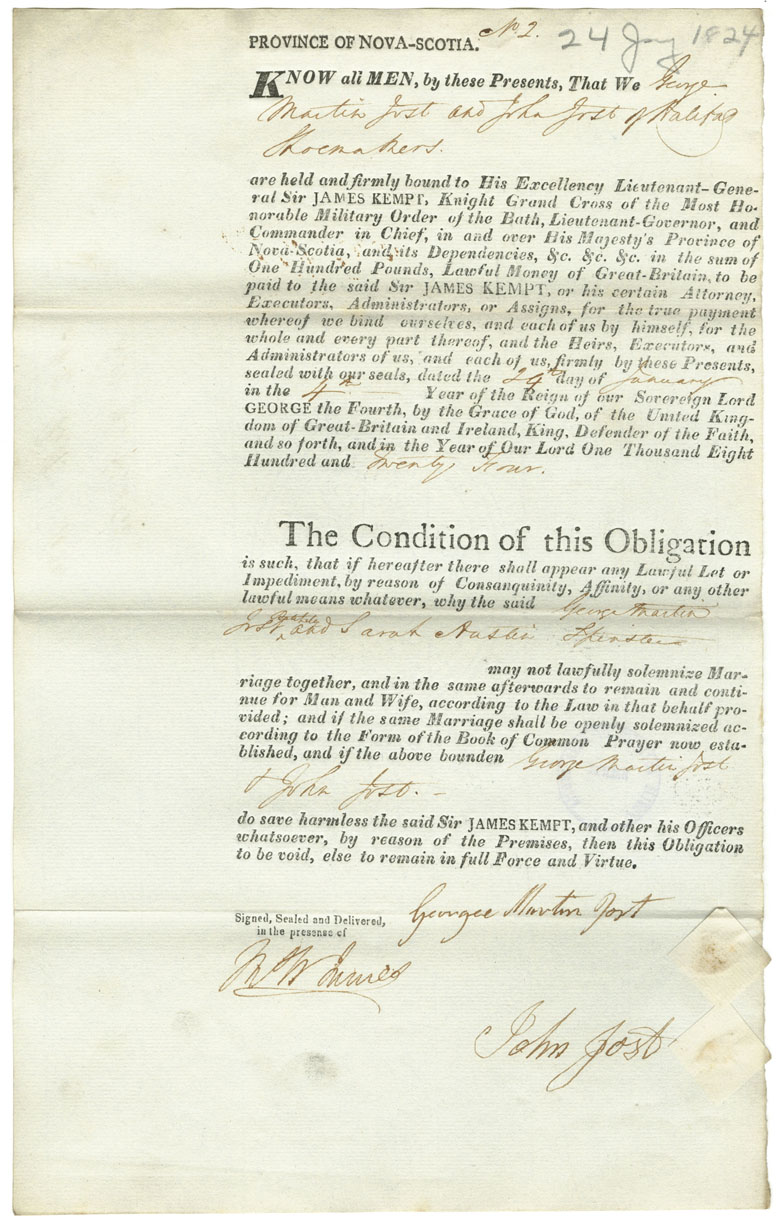 PROVINCE OF NOVA-SCOTIA. No 2. 24 Jany 1824
KNOW all MEN, by these Presents, That We George
Martin Jost and John Jost of Halifax
Shoemakers.
are held and firmly bound to His Excellency Lieutenant-Gene-
ral Sir JAMES KEMPT, Knight Grand Cross of the Most Ho-
norable Military Order of the Bath, Lieutenant-Governor, and
Commander in Chief, in and over His Majesty's Province of
Nova-Scotia, and its Dependencies, &c. &c. &c. in the sum of
One Hundred Pounds, Lawful Money of Great-Britain, to be
paid to the said Sir JAMES KEMPT, or his certain Attorney,
Executors, Administrators, or Assigns, for the true payment
whereof we bind ourselves, and each of us by himself, for the
whole and every part thereof, and the Heirs, Executors, and
Administrators of us, and each of us, firmly by these Presents,
sealed with our seals, dated the 24th day of January
in the 4th Year of the Reign of our Sovereign Lord
GEORGE the Fourth, by the Grace of God, of the United King-
dom of Great-Britain and Ireland, King, Defender of the Faith,
and so forth, and in the Year of Our Lord One Thousand Eight
Hundred and Twenty Four.
The Condition of this Obligation
is such, that if hereafter there shall appear any Lawful Let or
Impediment, by reason of Consanquinity, Affinity, or any other
lawful means whatever, why the said George Martin
Jost and Sarah Austin Spinster
may not lawfully solemnize Mar-
riage together, and in the same afterwards to remain and conti-
nue for Man and Wife, according to the Law in that behalf pro-
vided; and if the same Marriage shall be openly solemnized ac-
cording to the Form of the Book of Common Prayer now esta-
blished, and if the above bounden George Martin Jost
& John Jost.
do save harmless the said Sir JAMES KEMPT, and other his Officers
whatsoever, by reason of the Premises, then this Obligation
to be void, else to remain in full Force and Virtue.
Signed, Sealed and Delivered,
in the presence of
George Martin Jost
John Jost